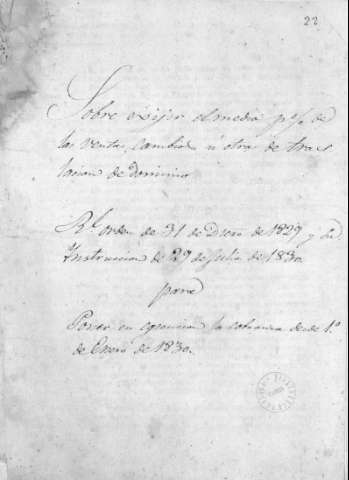 22
Sobre exijir el medio p% de
las ventas, cambios ú otra de tras
lacion de dominio
Rl orden de 31 de Dicre de 1829 y la
Instruccion de 29 de Julio de 1830
para
Poner en egecucion la cobranza desde 1.º
de Enero de 1830.